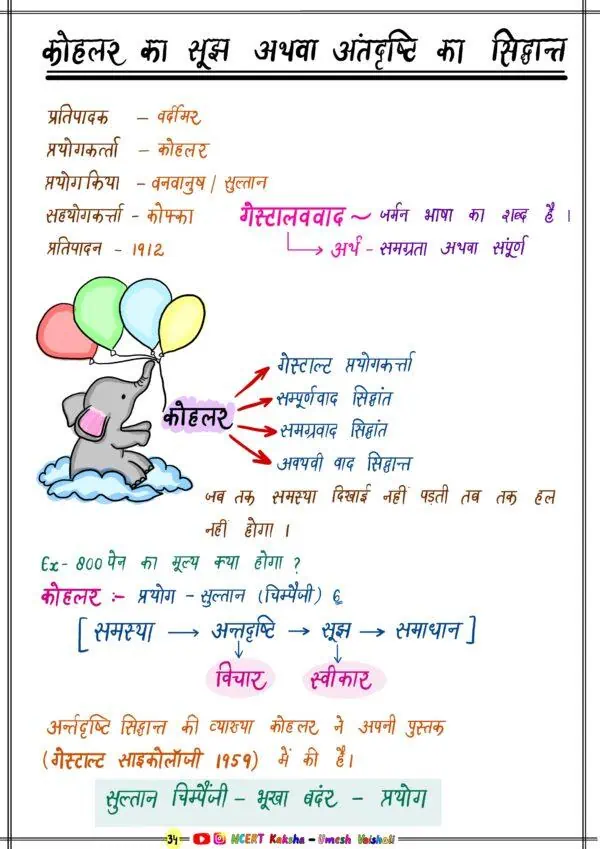 कोहलर का सूझ अथवा अंतदृष्टि का सिद्धान्त
प्रतिपादक – वर्दीमर
प्रयोगकर्त्ता – कोहलर
प्रयोग किया – वनवानुष / सुल्तान
सहयोगकर्त्ता – कोफ्का
प्रतिपादन - 1912
गेस्टालववाद ~ जर्मन भाषा का शब्द है ।
अर्थ - समग्रता अथवा संपूर्ण
कोहलर
गेस्टाल्ट प्रयोगकर्त्ता
सम्पूर्णवाद सिद्धांत
समग्रवाद सिद्धांत
अवयवी वाद सिद्धान्त
जब तक समस्या दिखाई नहीं पड़ती तब तक हल
नहीं होगा ।
Ex- 800 पेन का मूल्य क्या होगा ?
कोहलर :- प्रयोग - सुल्तान (चिम्पैंजी) 6
[ समस्या → अन्तदृष्टि → सूझ → समाधान ]
विचार
स्वीकार
अर्न्तदृष्टि सिद्धान्त की व्याख्या कोहलर ने अपनी पुस्तक
(गेस्टाल्ट साइकोलॉजी 1959) में की है।
सुल्तान चिम्पैंजी – भूखा बदंर – प्रयोग
34 NCERT Kaksha – Umesh Vaishali